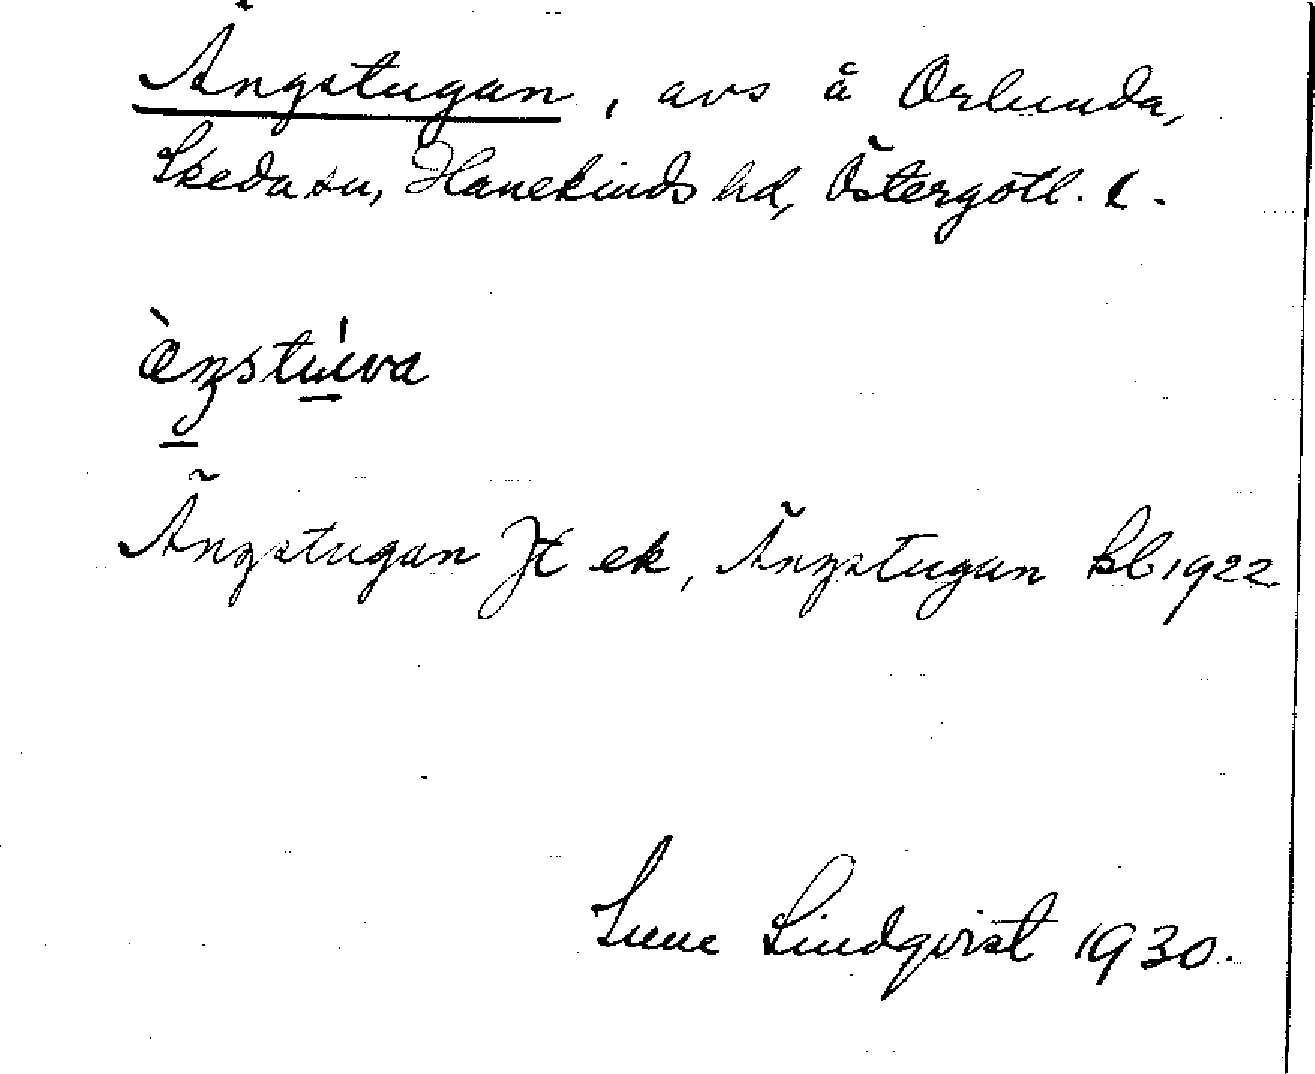 Ängstugan, avs å Orlunda,
Skeda sn, Hanekinds hd, Östergötl. l.
ängstúva
Ängstugan Jt ek, Ängstugan Bl 1922
Sune Lindqvist 1930.